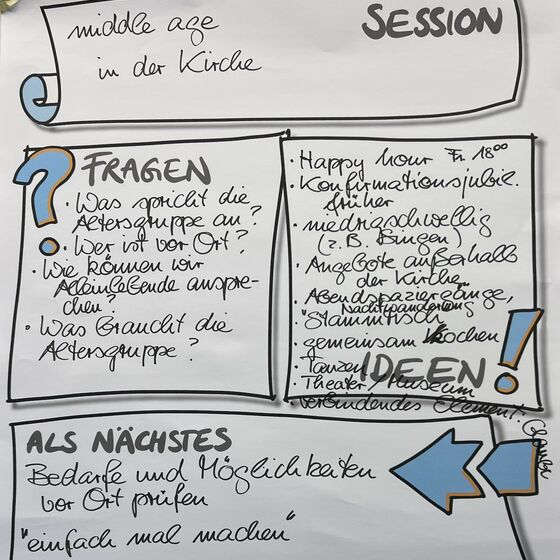 SESSION
middle age
in der Kirche
FRAGEN
· Was spricht die
Altersgruppe an?
· Wer ist vor Ort?
· Wie können wir
Alleinlebende anspre-
chen?
· Was braucht die
Altersgruppe?
· Happy hour Fr. 18⁰⁰
· Konfirmationsjubil.
früher
· niedrigschwellig
(z.B. Bingen)
· Angebote außerhalb
der Kirche
· Abendspaziergänge,
Nachtwanderung
· "Stammtisch"
· gemeinsam kochen
· Tanzen
· Theater / Museum
· verbindendes Element:
IDEEN
ALS NÄCHSTES
Bedarfe und Möglichkeiten
vor Ort prüfen
"einfach mal machen"